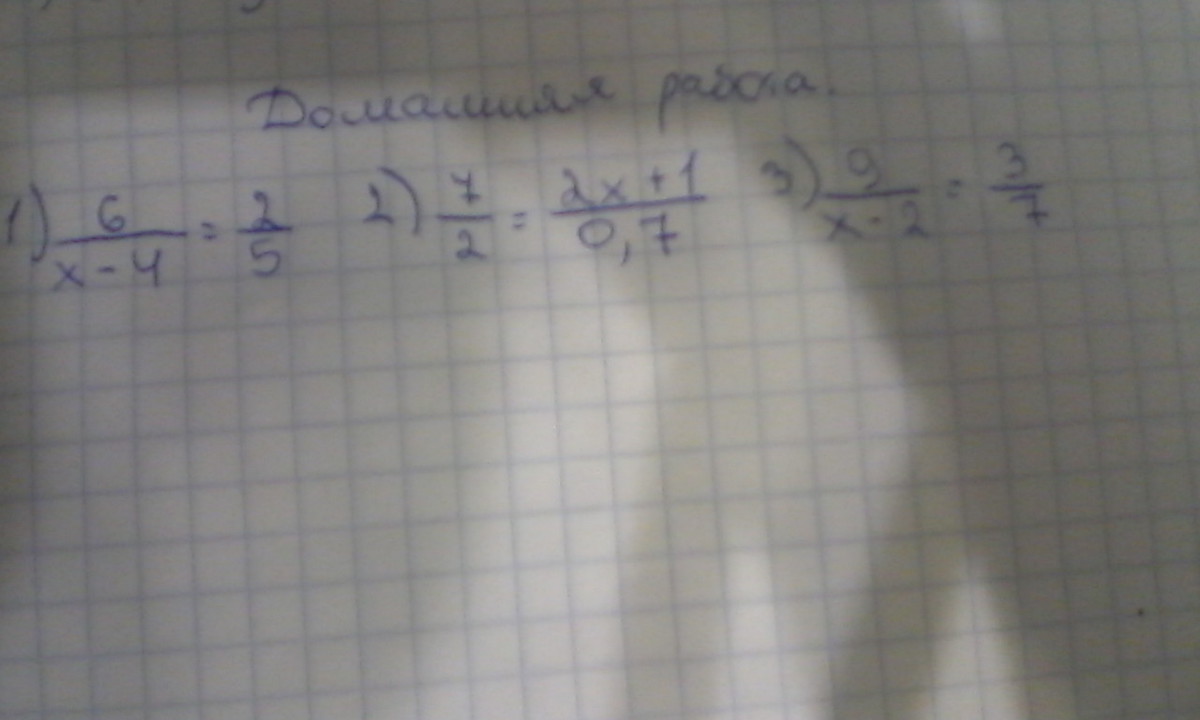 Домашняя работа.
1) 6/(x-4) = 2/5 2) 7/2 = (2x+1)/0,7 3) 9/(x-2) = 3/7